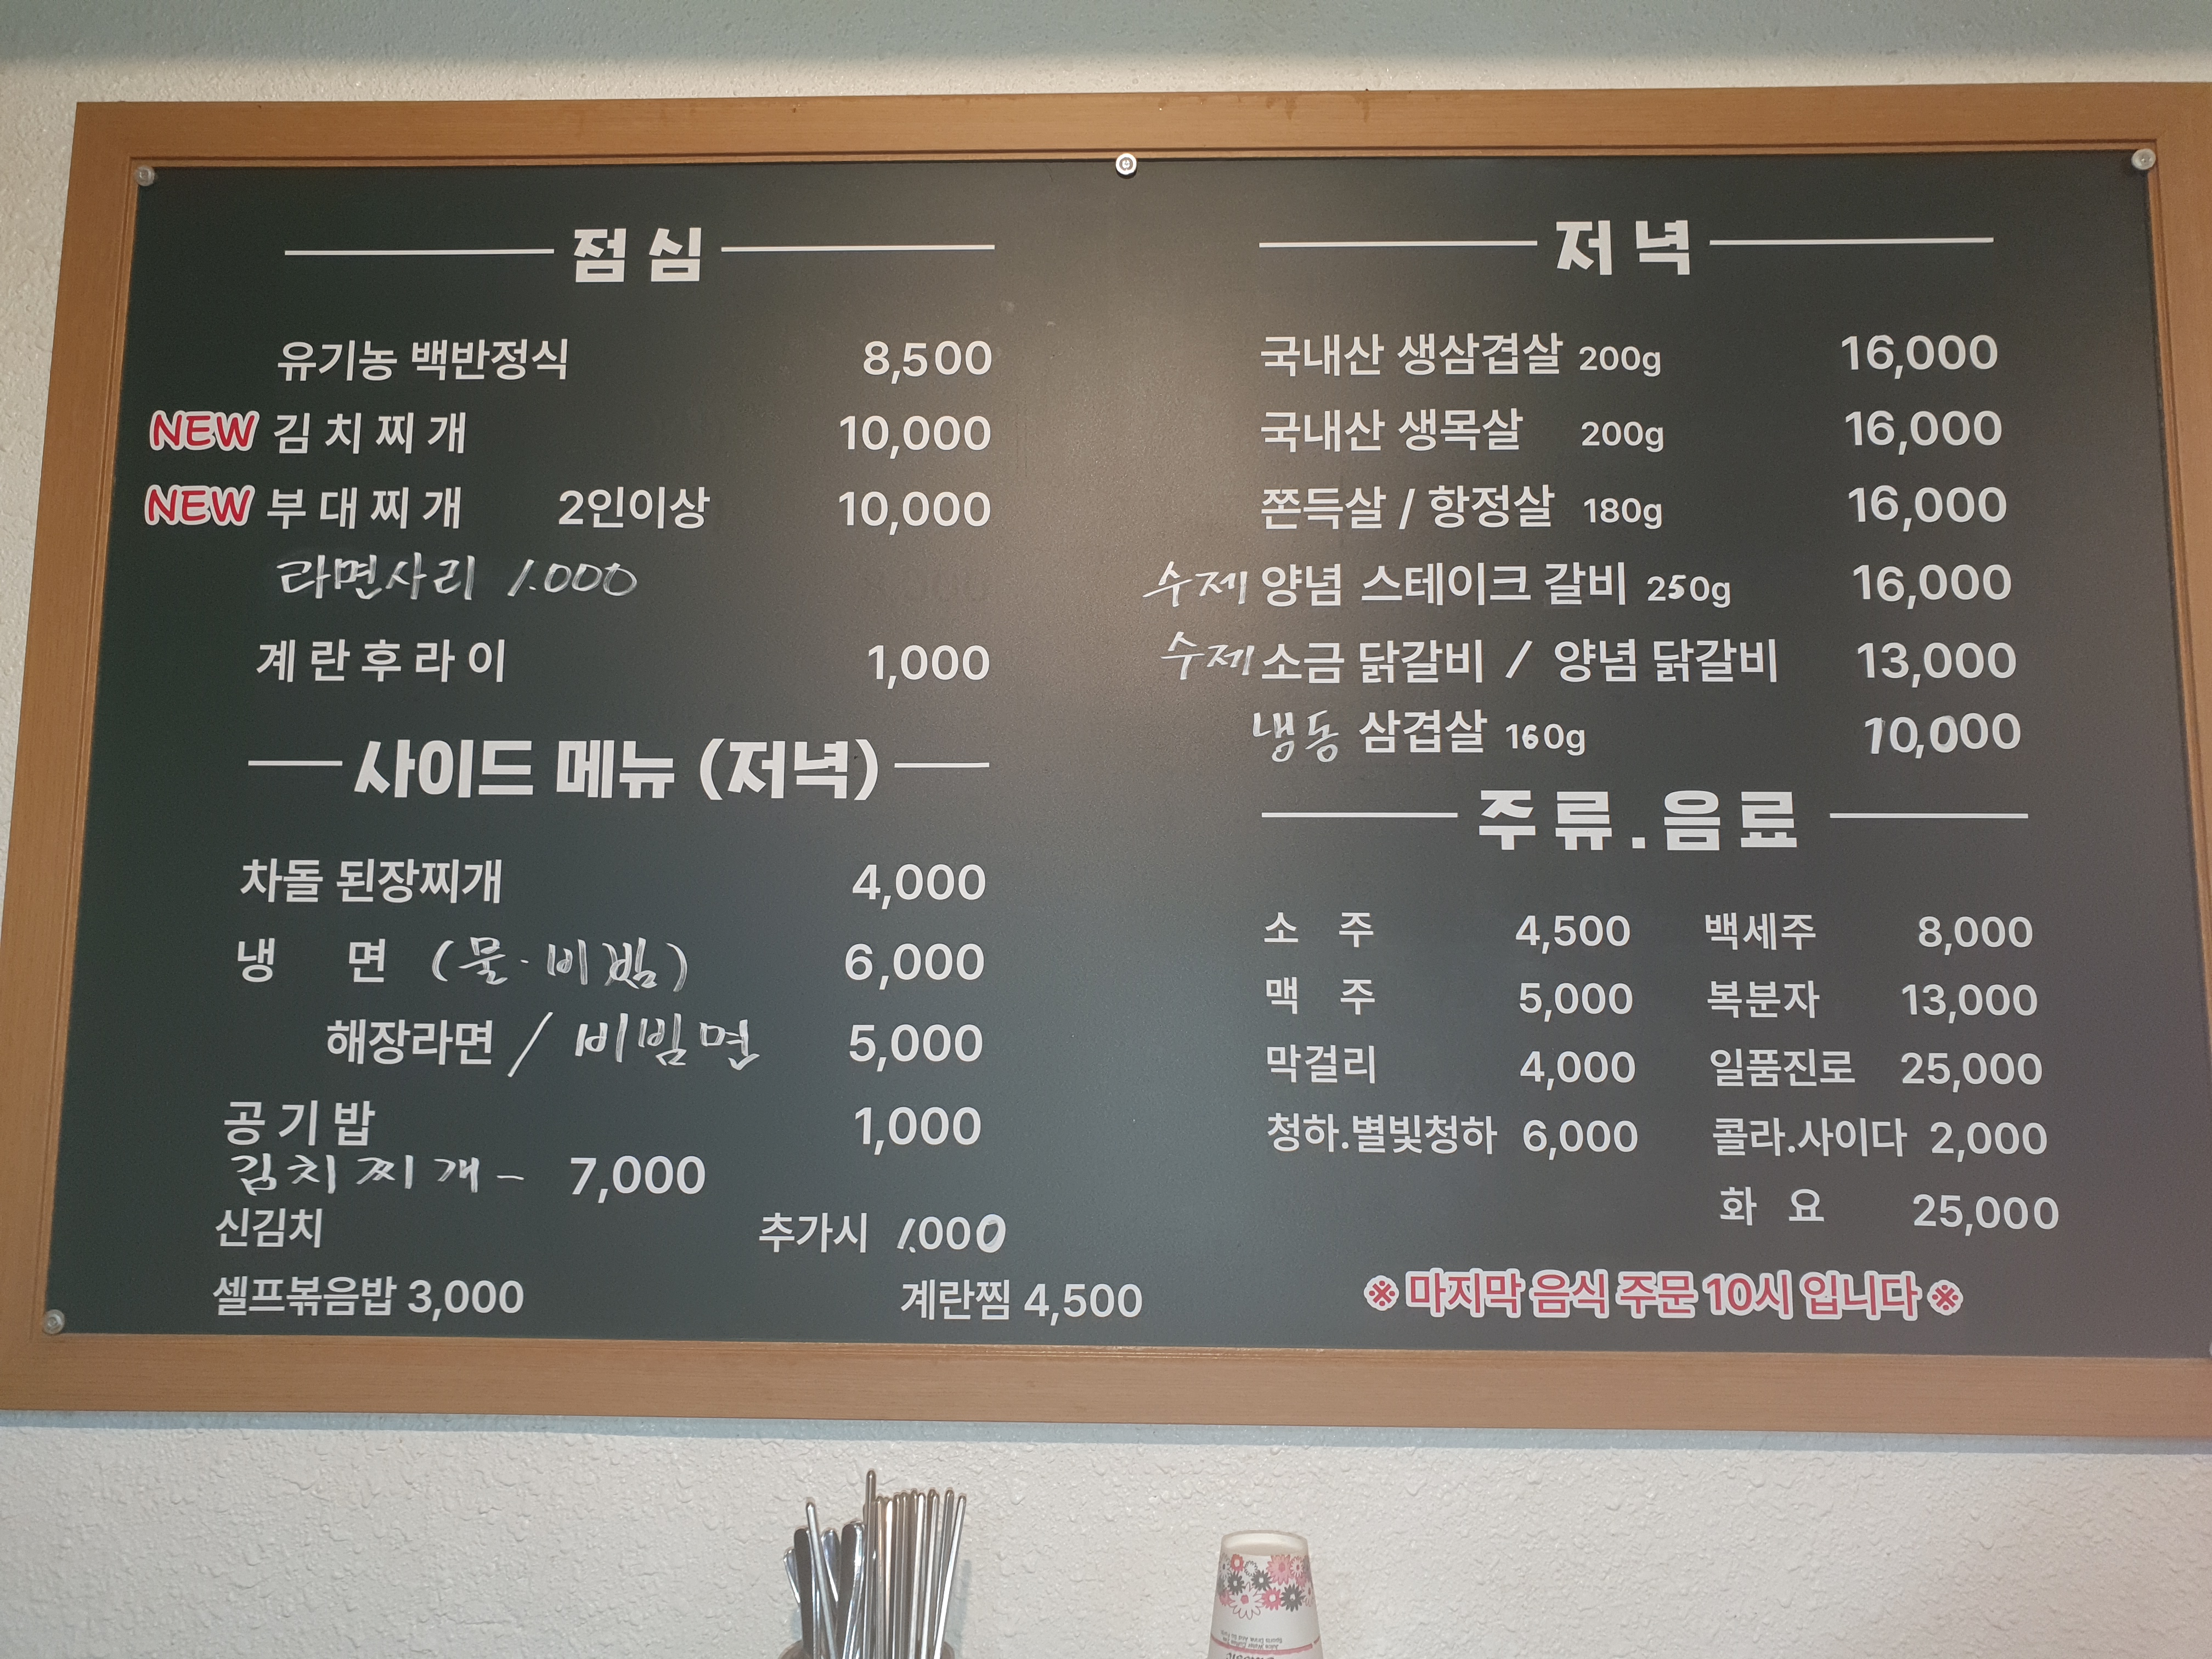 점심
유기농 백반정식 8,500
NEW 김치찌개 10,000
NEW 부대찌개 2인이상 10,000
라면사리 1.000
계란후라이 1,000
사이드 메뉴 (저녁)
차돌 된장찌개 4,000
냉 면 (물·비빔) 6,000
해장라면 / 비빔면 5,000
공기밥 1,000
김치찌개 - 7,000
신김치 추가시 1.000
셀프볶음밥 3,000 계란찜 4,500
저녁
국내산 생삼겹살 200g 16,000
국내산 생목살 200g 16,000
쫀득살 / 항정살 180g 16,000
수제 양념 스테이크 갈비 250g 16,000
수제 소금 닭갈비 / 양념 닭갈비 13,000
냉동 삼겹살 160g 10,000
주류.음료
소 주 4,500 백세주 8,000
맥 주 5,000 복분자 13,000
막걸리 4,000 일품진로 25,000
청하.별빛청하 6,000 콜라.사이다 2,000
화 요 25,000
※ 마지막 음식 주문 10시 입니다 ※